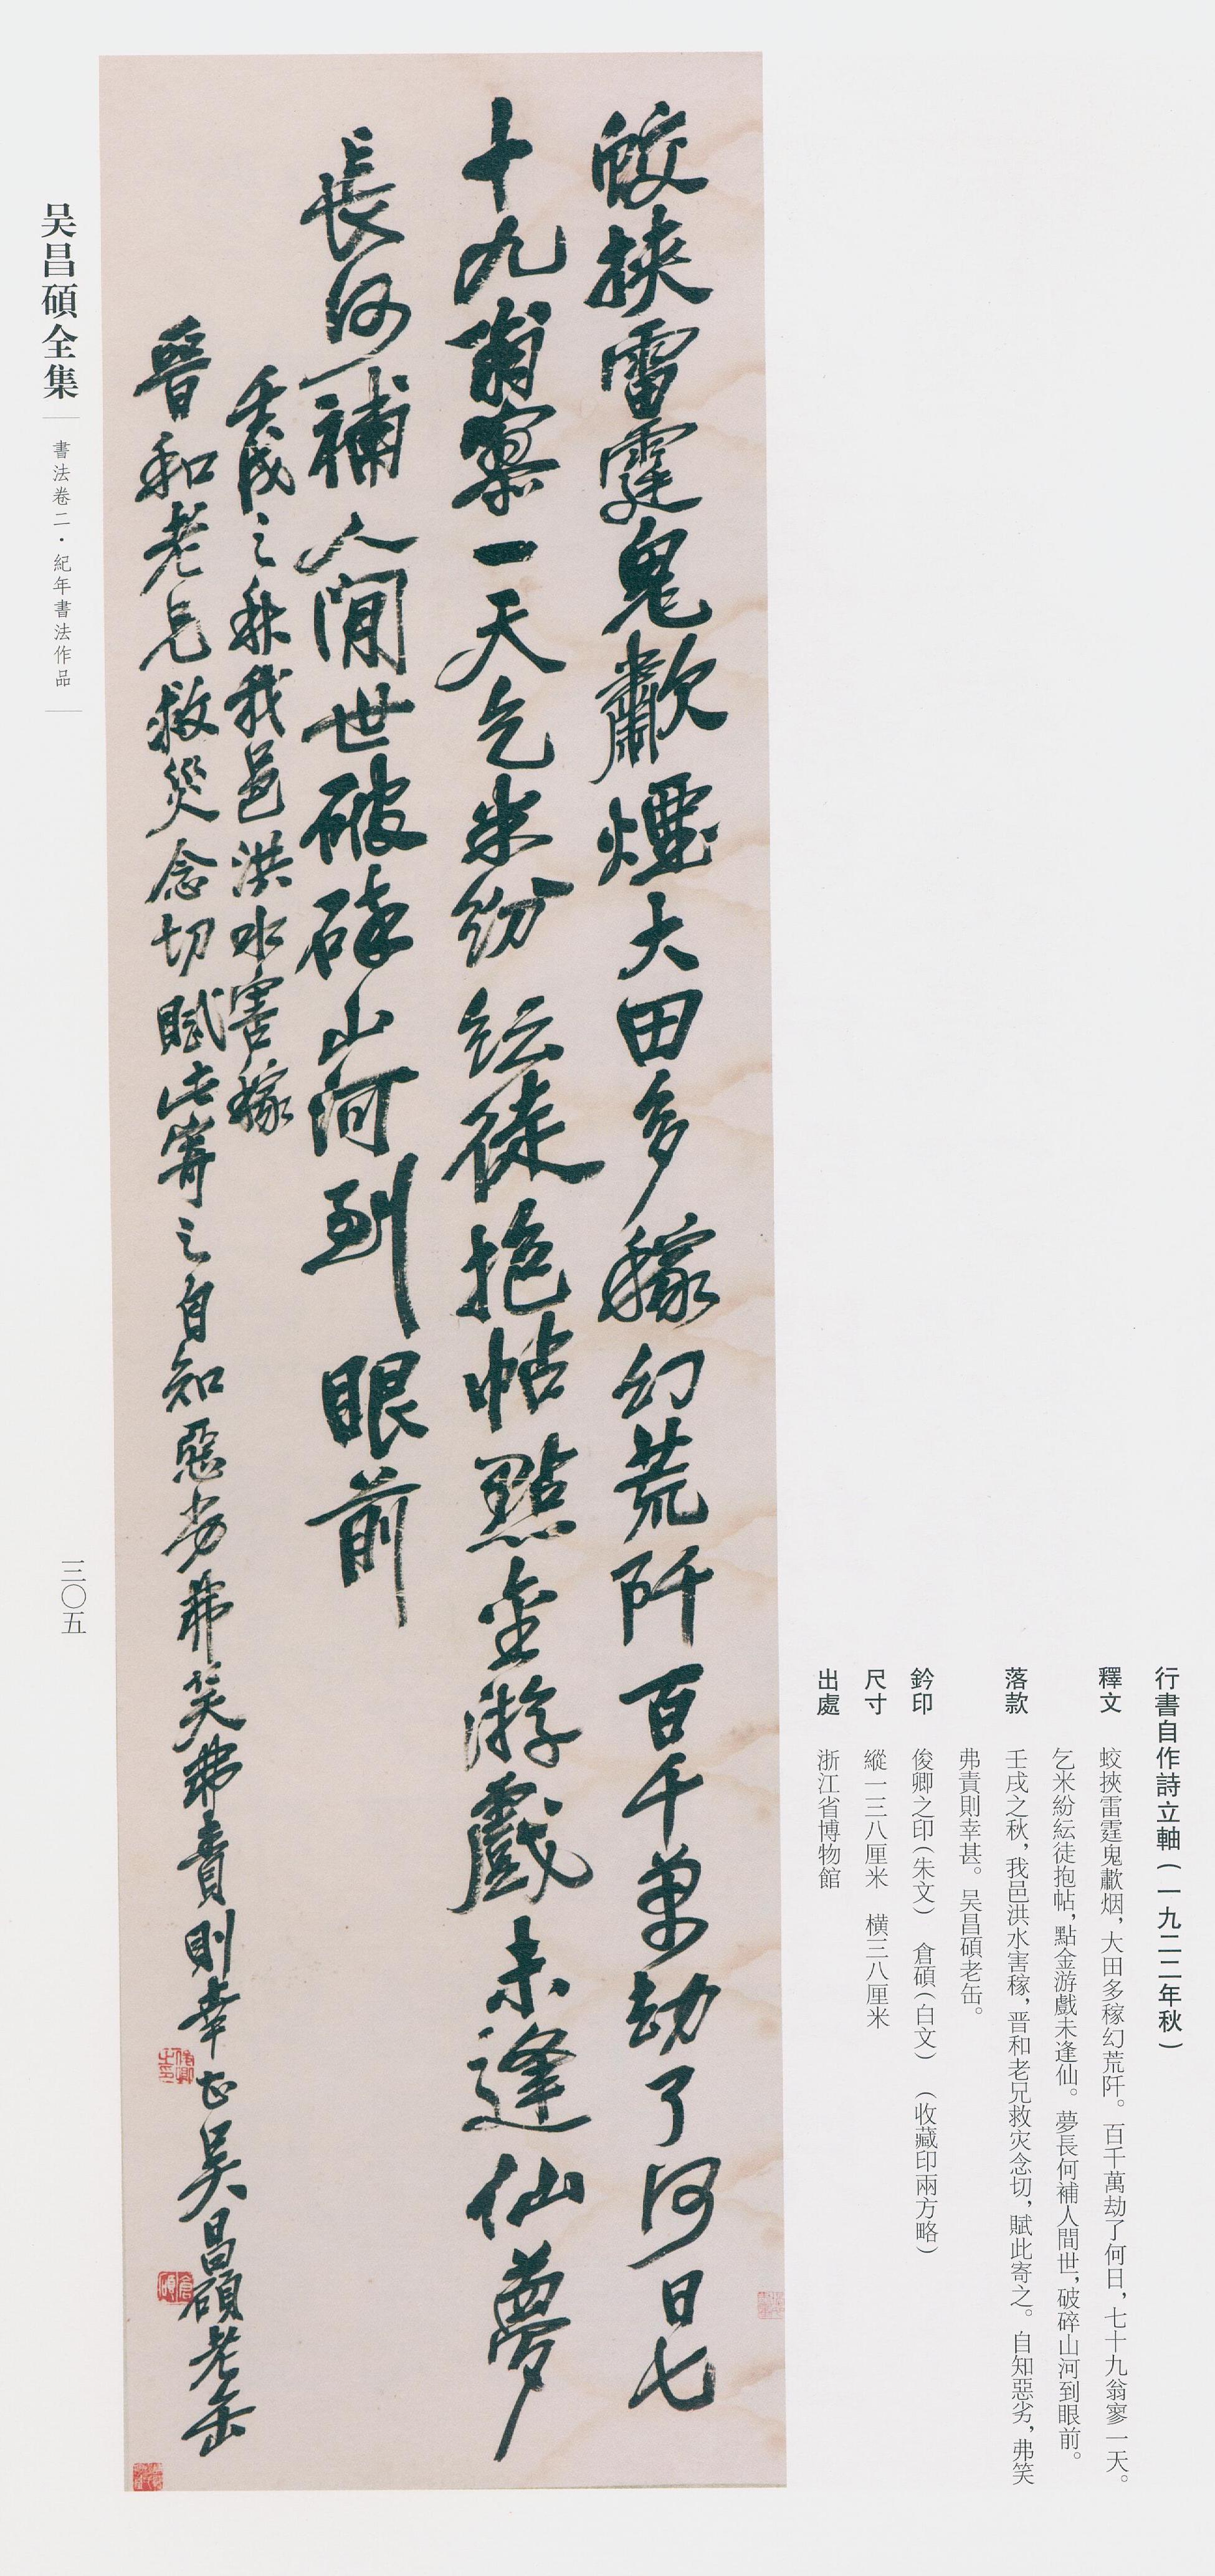 行書自作詩立軸(一九二二年秋)
釋文 蛟挾雷霆鬼歗烟,大田多稼幻荒阡。百千萬劫了何日,七十九翁寥一天。
乞米紛紜徒抱帖,點金游戲未逢仙。夢長何補人間世,破碎山河到眼前。
落款 壬戌之秋,我邑洪水害稼,晋和老兄救灾念切,賦此寄之。自知惡劣,弗笑
弗責則幸甚。吴昌碩老缶。
鈐印 俊卿之印(朱文) 倉碩(白文) (收藏印兩方略)
尺寸 縱一三八厘米 橫三八厘米
出處 浙江省博物館
蛟挾雷霆鬼歗煙大田多稼幻荒阡百千萬劫了何日七
十九翁寥一天乞米紛紜徒抱帖點金游戲未逢仙夢
長何補人間世破碎山河到眼前
壬戌之秋我邑洪水害稼
晉和老兄救災念切賦此寄之自知惡劣弗笑弗責則幸甚吴昌碩老缶
俊卿之印
倉碩
吴昌碩全集
書法卷二·紀年書法作品
三〇五